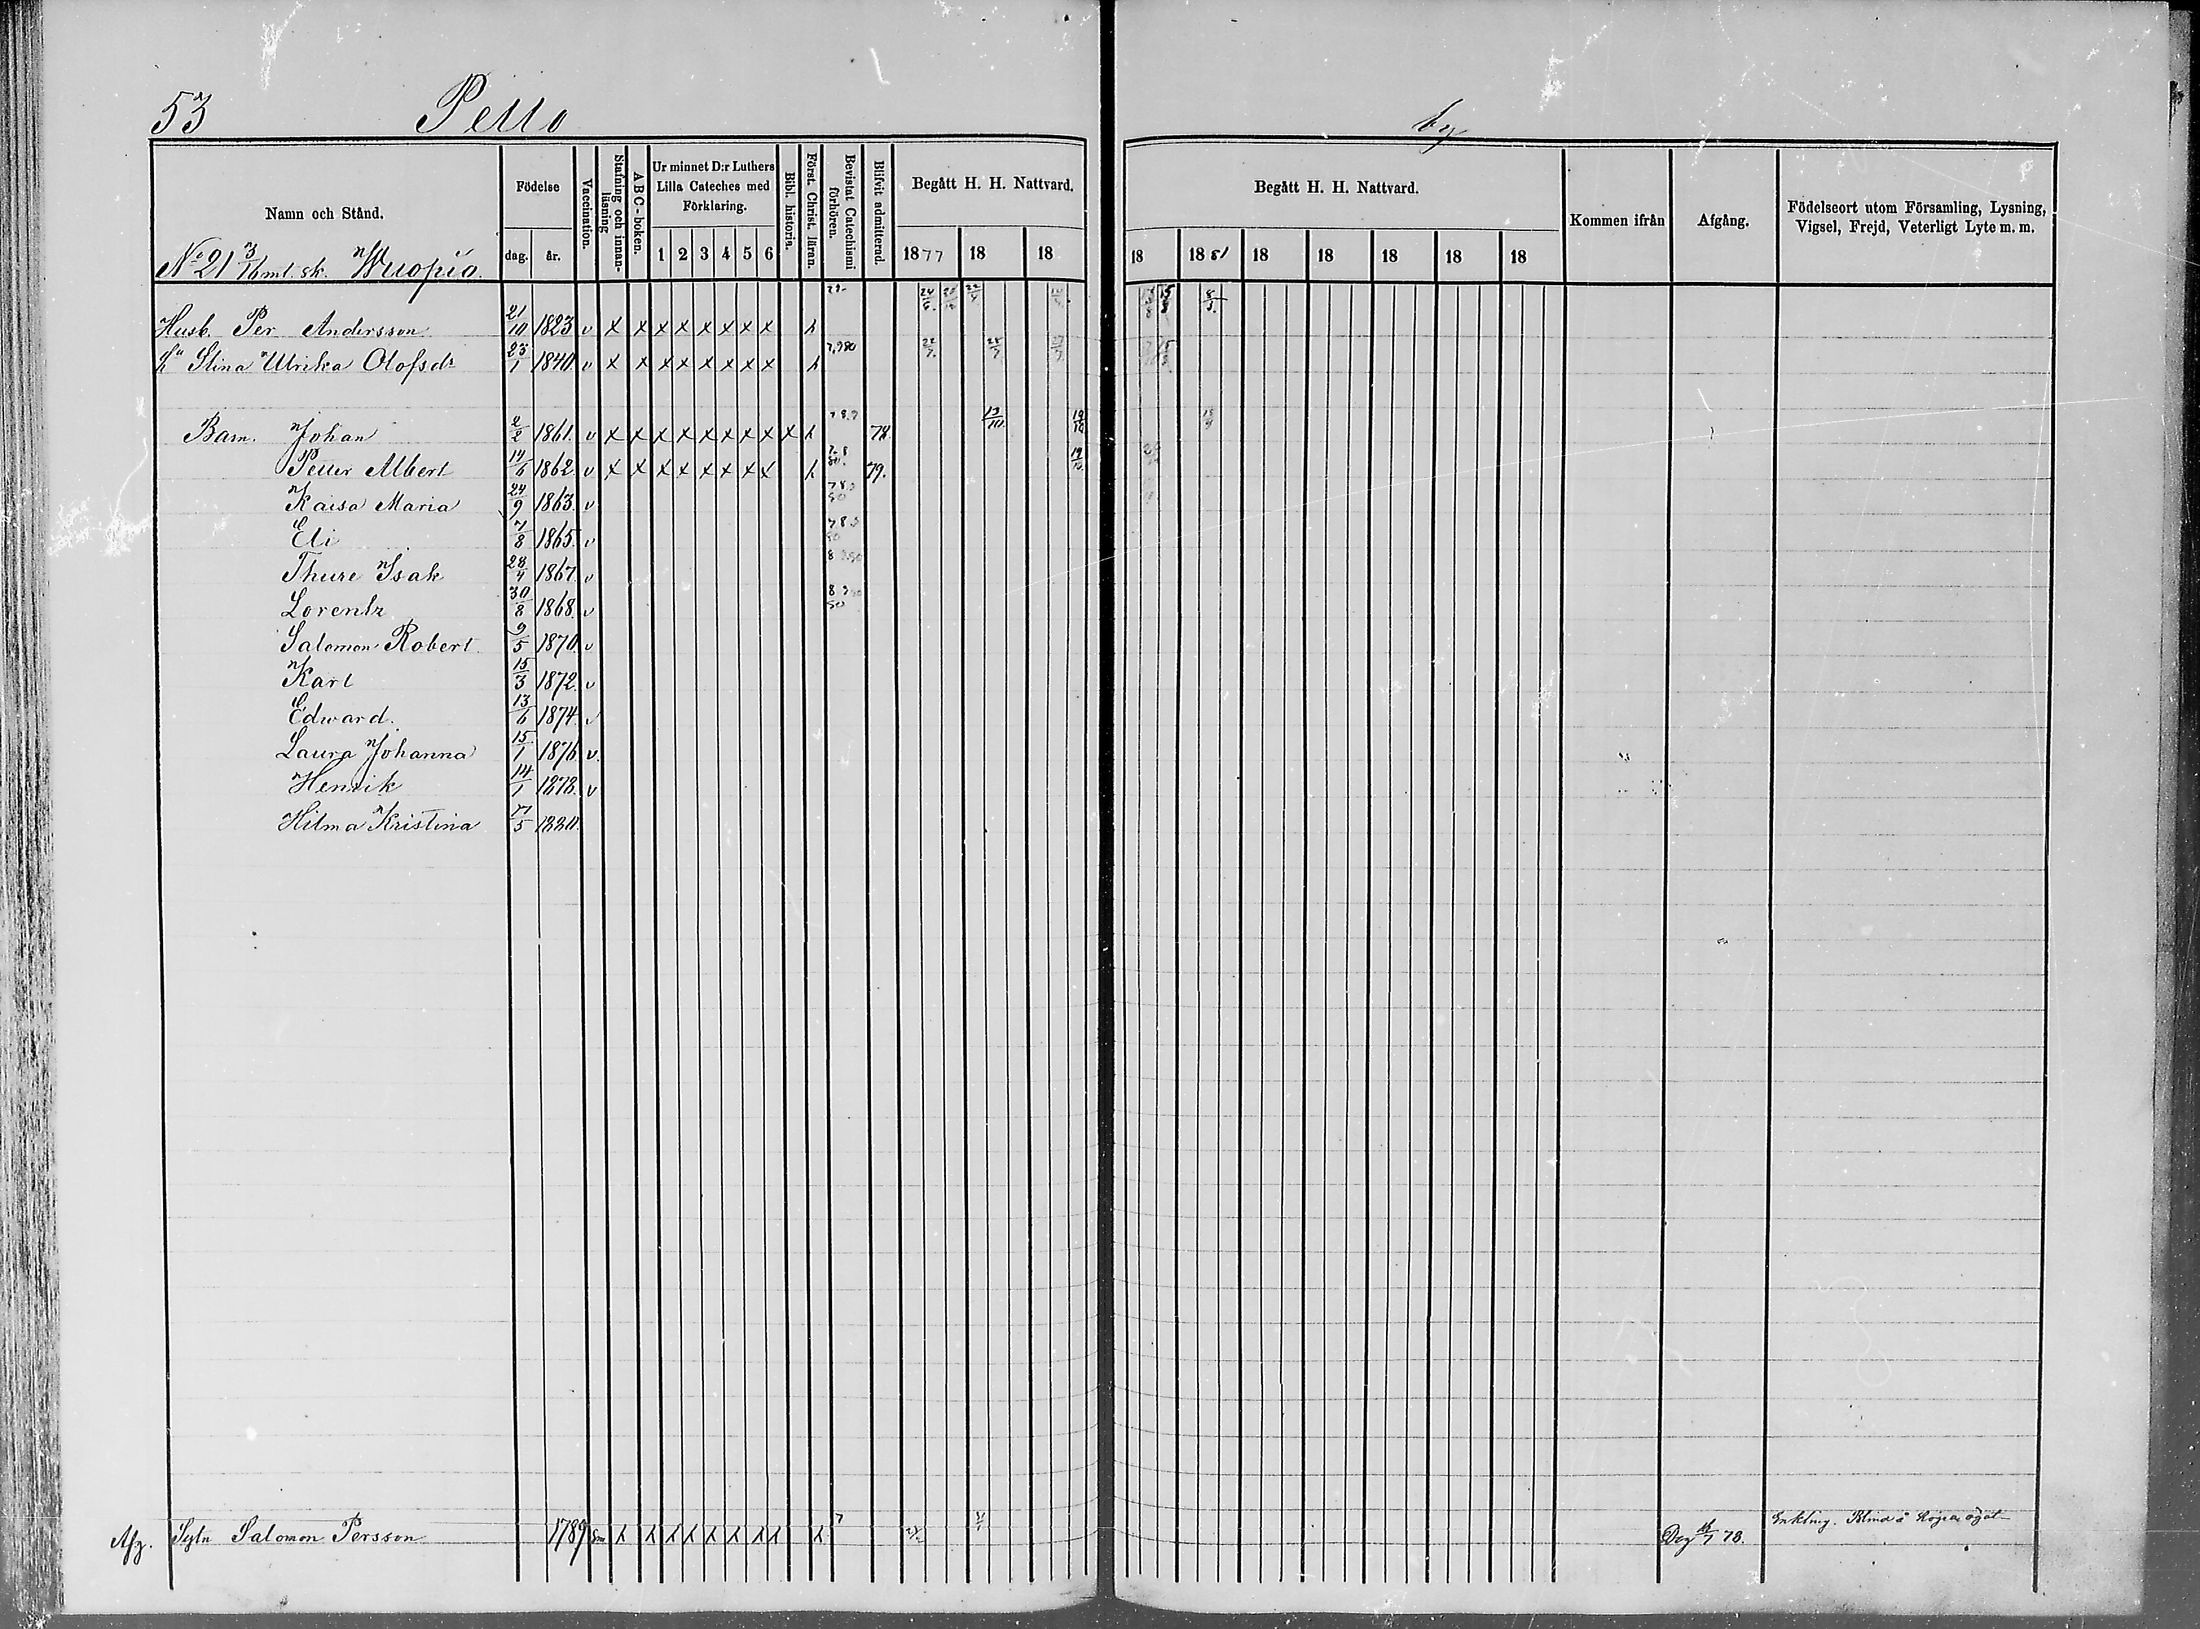 53 Pello by
Namn och Stånd.
Födelse
dag. år.
Vaccination.
Stafning och innanläsning
ABC-boken.
Ur minnet D:r Luthers Lilla Cateches med Förklaring.
1 2 3 4 5 6
Bibl. historia.
Först. Christ. läran.
Bevistat Catechismi förhören.
Blifvit admitterad.
Begått H. H. Nattvard.
1877 18 18
Begått H. H. Nattvard.
18 1881 18 18 18 18 18
Kommen ifrån
Afgång.
Födelseort utom Församling, Lysning, Vigsel, Frejd, Veterligt Lyte m. m.
No 21 3/16 mt. sk. Wuopio.
Husb. Per Andersson 21/10 1823 v x x x x x x x x h
h Stina Ulrika Olofsdr 23/1 1840. v x x x x x x x x h
Barn. Johan 2/2 1861. v x x x x x x x x x h 78.
Petter Albert 14/6 1862 v x x x x x x x x h 79.
Kaisa Maria 24/9 1863. v
Eli 7/8 1865. v
Thure Isak 28/4 1867. v
Lorentz 30/8 1868. v
Salomon Robert. 9/5 1870. v
Karl 15/3 1872. v
Edward. 13/6 1874. v
Laura Johanna 15/1 1876. v.
Henrik 14/1 1878. v
Hilma Kristina 5 1880.
Afg. Salomon Persson 1789 h h h h h h h h h 78. Enkling. Blind å högra ögat